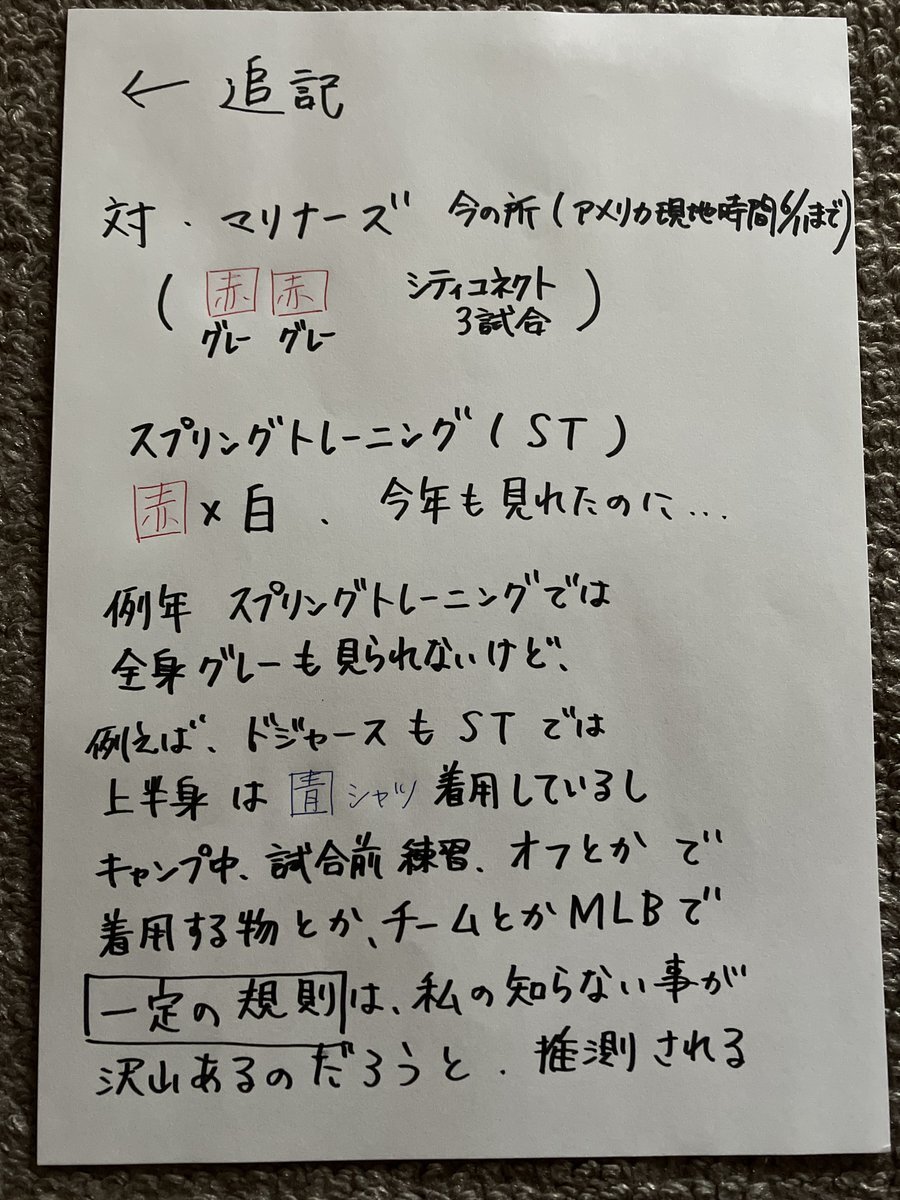 ← 追記
対・マリナーズ 今の所(アメリカ現地時間6/11まで)
(赤 赤 シティコネクト
グレー グレー 3試合)
スプリングトレーニング(ST)
赤×白、今年も見れたのに…
例年 スプリングトレーニングでは
全身グレーも見られないけど、
例えば、ドジャースも STでは
上半身は 青シャツ 着用しているし
キャンプ中、試合前練習、オフとかで
着用する物とか、チームとかMLBで
一定の規則は、私の知らない事が
沢山あるのだろうと、推測される